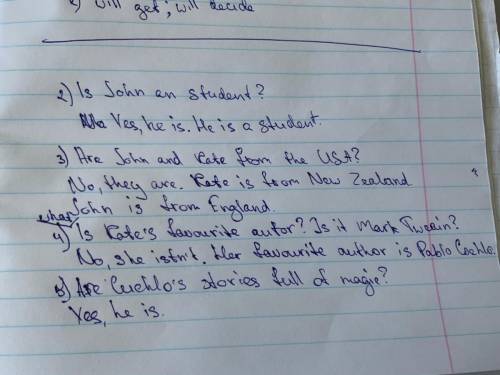 2) will get; will decide
2) Is John an student?
Yes, he is. He is a student.
3) Are John and Kate from the USA?
No, they are. Kate is from New Zealand
John is from England.
what
4) Is Kate's favourite autor? Is it Mark Twein?
No, she istn't. Her favourite author is Pablo Coehlo.
5) Are Cuehlo's stories full of magic?
Yes, he is.